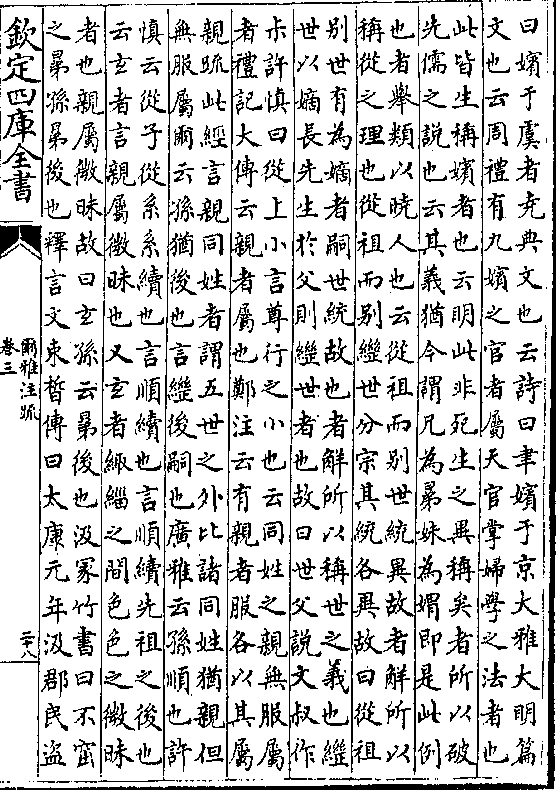 曰嬪于虞者堯典文也云詩曰聿嬪于京大雅大明篇
文也云周禮有九嬪之官者屬天官掌婦學之法者也
此皆生稱嬪者也云明此非死生之異稱矣者所以破
先儒之説也云其義猶今謂兄為晜妹為媦即是此例
也者舉類以曉人也云從祖而别世統異故者解所以
稱從之理也從祖而别繼世分宗其統各異故曰從祖
别世有為嫡者嗣世統故也者解所以稱世之義也繼
世以嫡長先生於父則繼世者也故曰世父説文叔作
尗許慎曰從上小言尊行之小也云同姓之親無服屬
者禮記大傳云親者屬也鄭注云有親者服各以其屬
親䟽此經言親同姓者謂五世之外比諸同姓猶親但
無服屬爾云孫猶後也言繼後嗣也廣雅云孫順也許
慎云從子從系系續也言順續也言順續先祖之後也
云玄者言親屬微昧也又玄者緅緇之間色色之微昧
者也親屬微昧故曰玄孫云晜後也汲冢竹書曰不窋
之晜孫晜後也釋言文束晳傳曰太康元年汲郡民盜
欽定四庫全書
爾雅注䟽
卷三
二十八